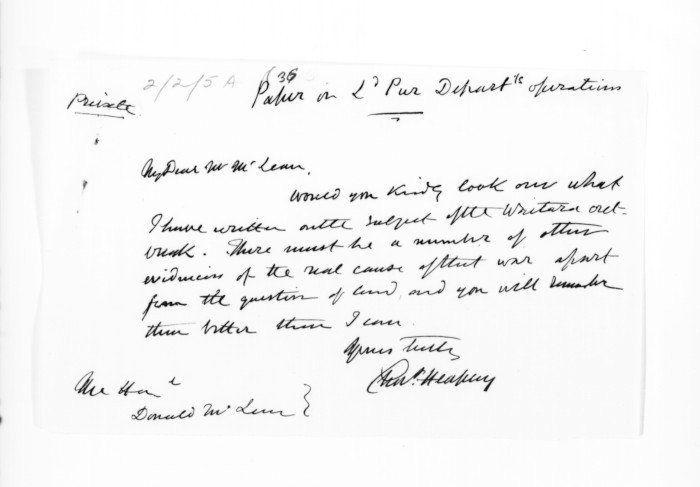 2/2/5A
36
Private
Paper on Ld Pur Departts operations
My Dear Mr McLean,
would you kindly look over what
I have written on the subject of the Waitara out-
break. There must be a number of other
evidences of the real cause of that war apart
from the question of land, and you will remember
them better than I can.
Yours truly
Chas. Heaphy
The Honl
Donald McLean